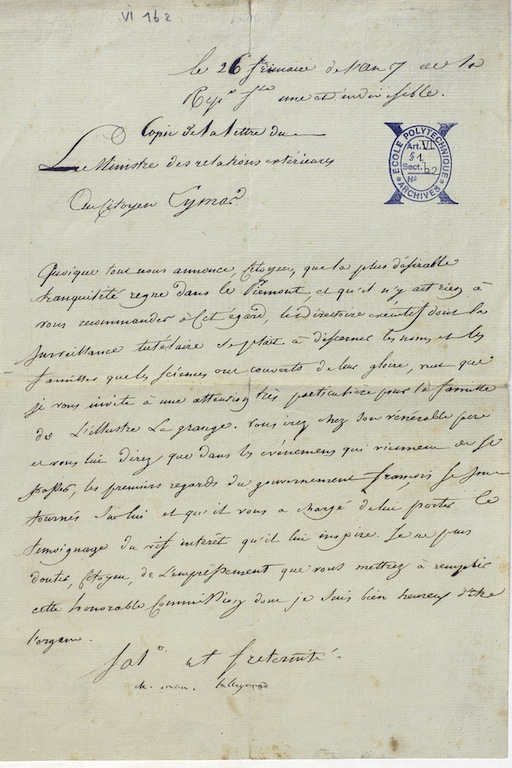 VI 162
le 26 frimaire de l'an 7 de la
Repe fse une et indivisible.
Copie de la lettre du
Le Ministre des relations extérieures
Au Citoyen Eymar
ECOLE POLYTECHNIQUE
ARCHIVES
Art. VI
§1
Sect.
No
Quoique tout nous annonce, Citoyen, que la plus désirable
tranquilité regne dans le Piemont, et qu'il n'y ait rien à
vous recommander à cet égard, le directoire exécutif dont la
surveillance tutélaire se plait à discerner les noms et les
familles que les sciences ont couverts de leur gloire, veut que
je vous invite à une attention très particulière pour la famille
de L'illustre La grange. vous irez chez son vénérable pere
et vous lui direz que dans les événemens qui viennent de se
passer, les premiers regards du gouvernement françois se sont
tournés sur lui et qu'il vous a chargé de lui porter le
témoignage du vif intérêt qu'il lui inspire. Je ne puis
douter, Citoyen, de L'empressement que vous mettrez à remplir
cette honorable Commission dont je suis bien heureux d'être
l'organe.
Salt et fraternité.
ch. mau. talleyrand